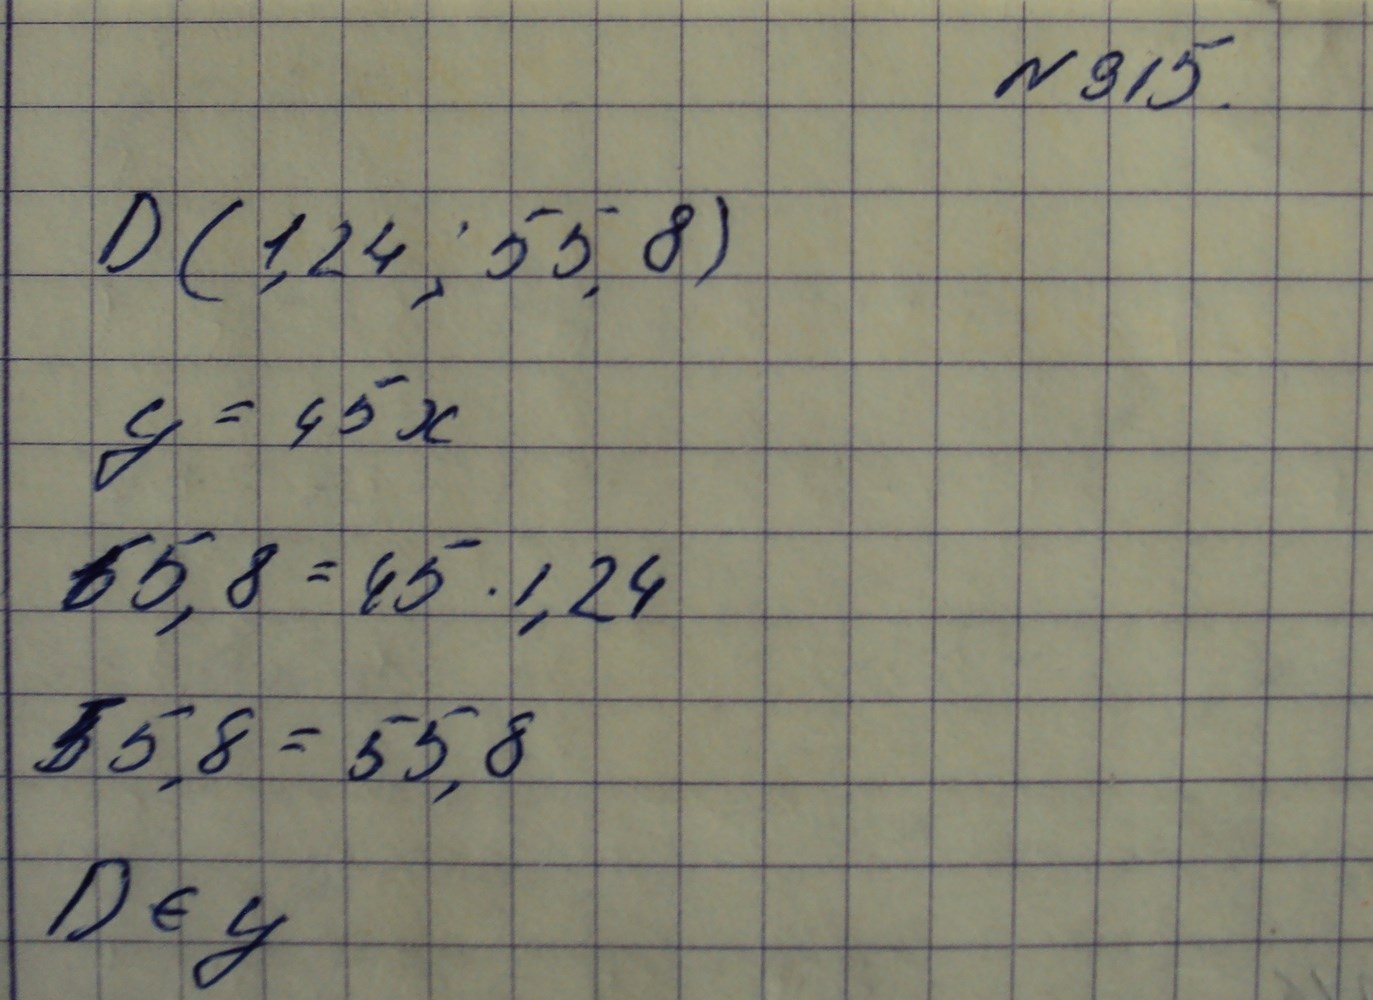 N 915.
D (1,24; 55,8)
y = 45x
55,8 = 45 · 1,24
55,8 = 55,8
D ∈ y